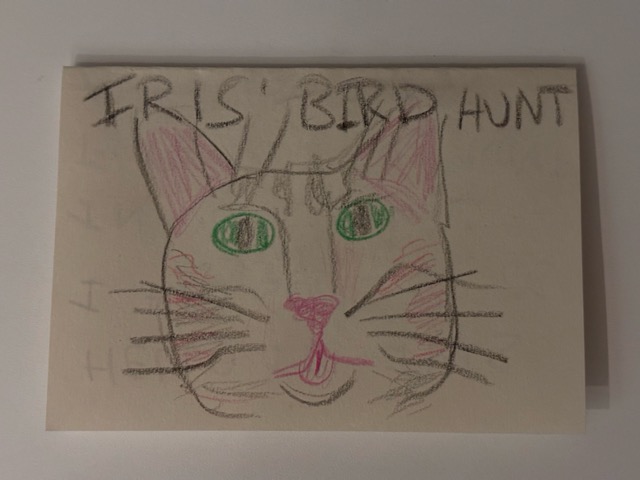 IRIS' BIRD HUNT